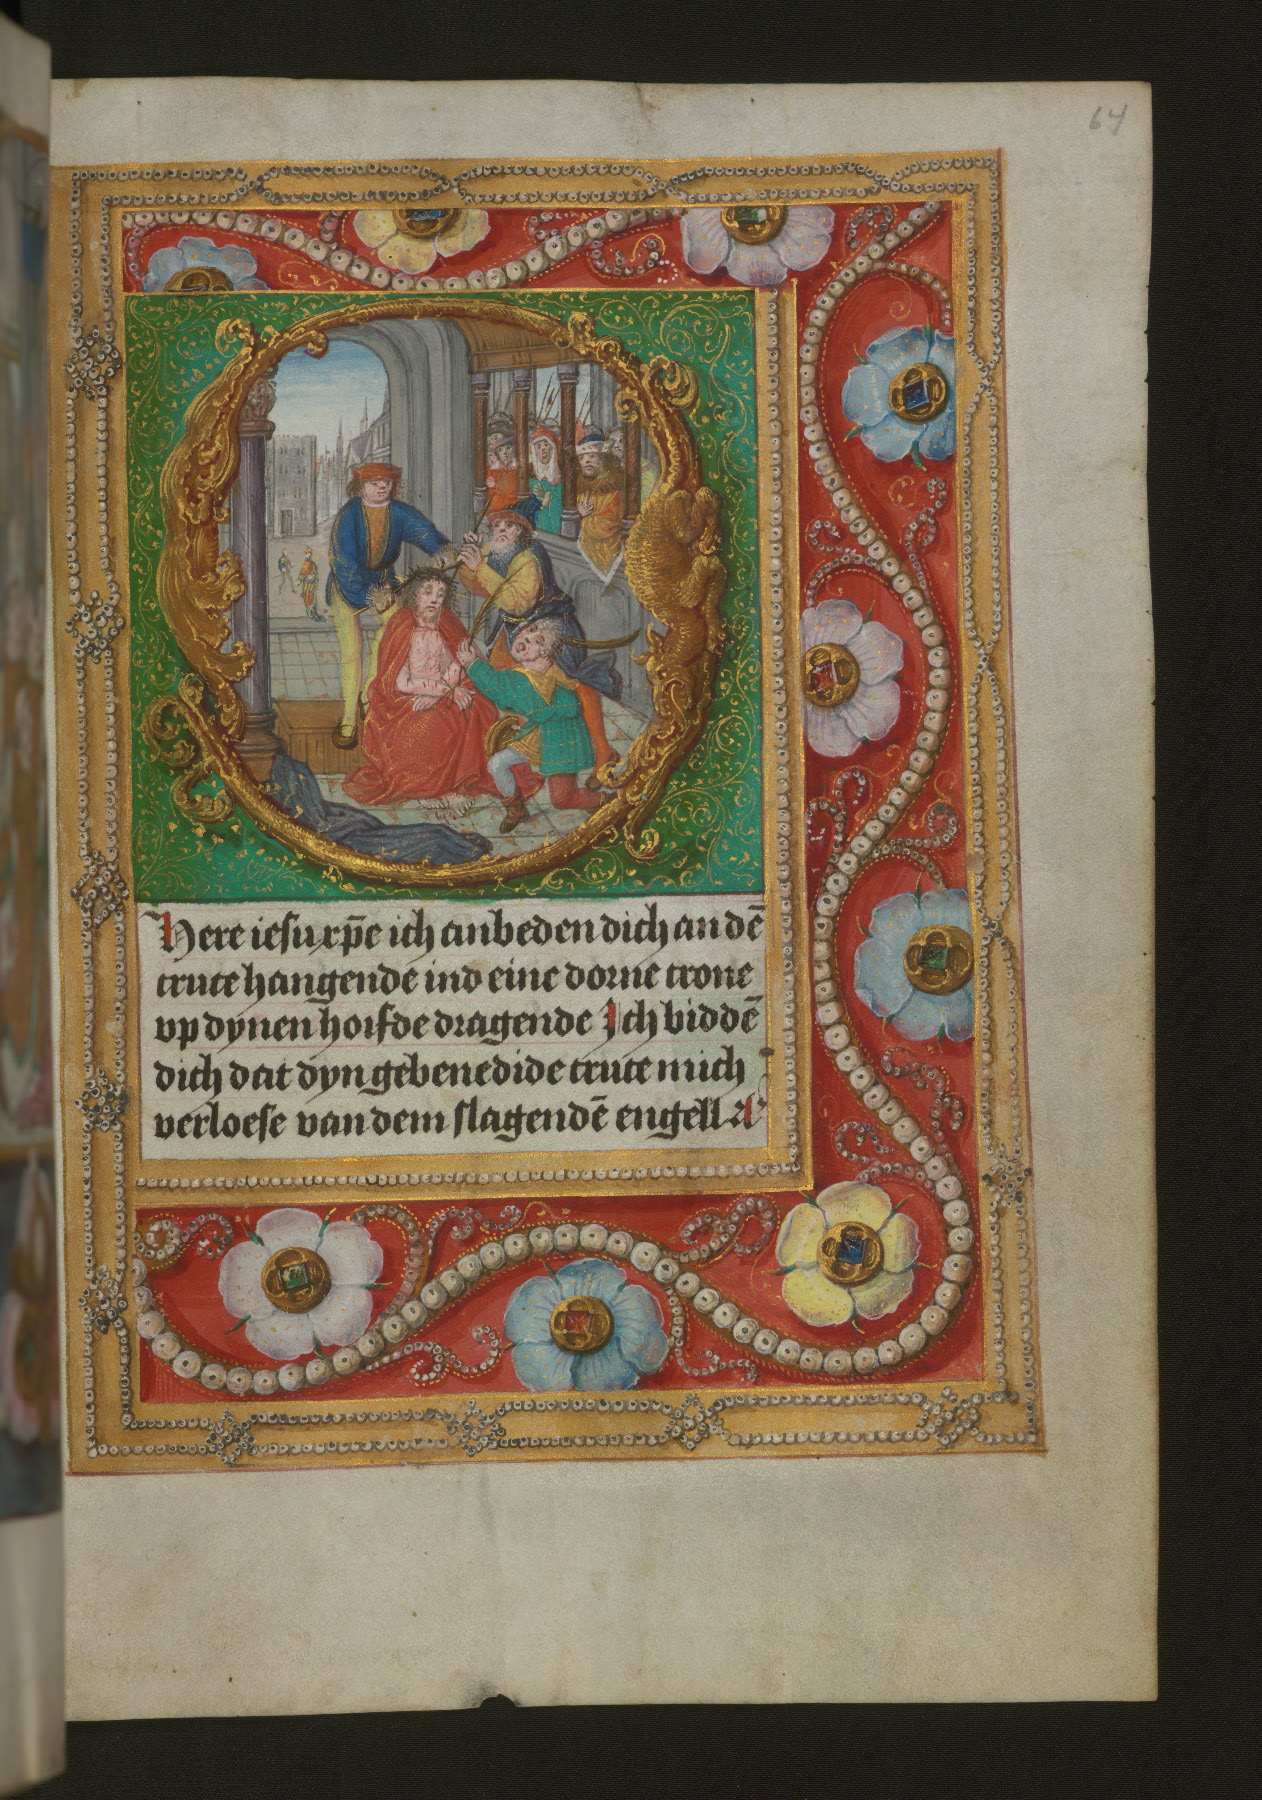 64
O
Here iesu xp̄e ich anbeden dich an dē
cruce hangende ind eine dorne crone
vp dynen hoifde dragende Ich biddē
dich dat dyn gebenedide cruce mich
verloese van dem slagendē engell A